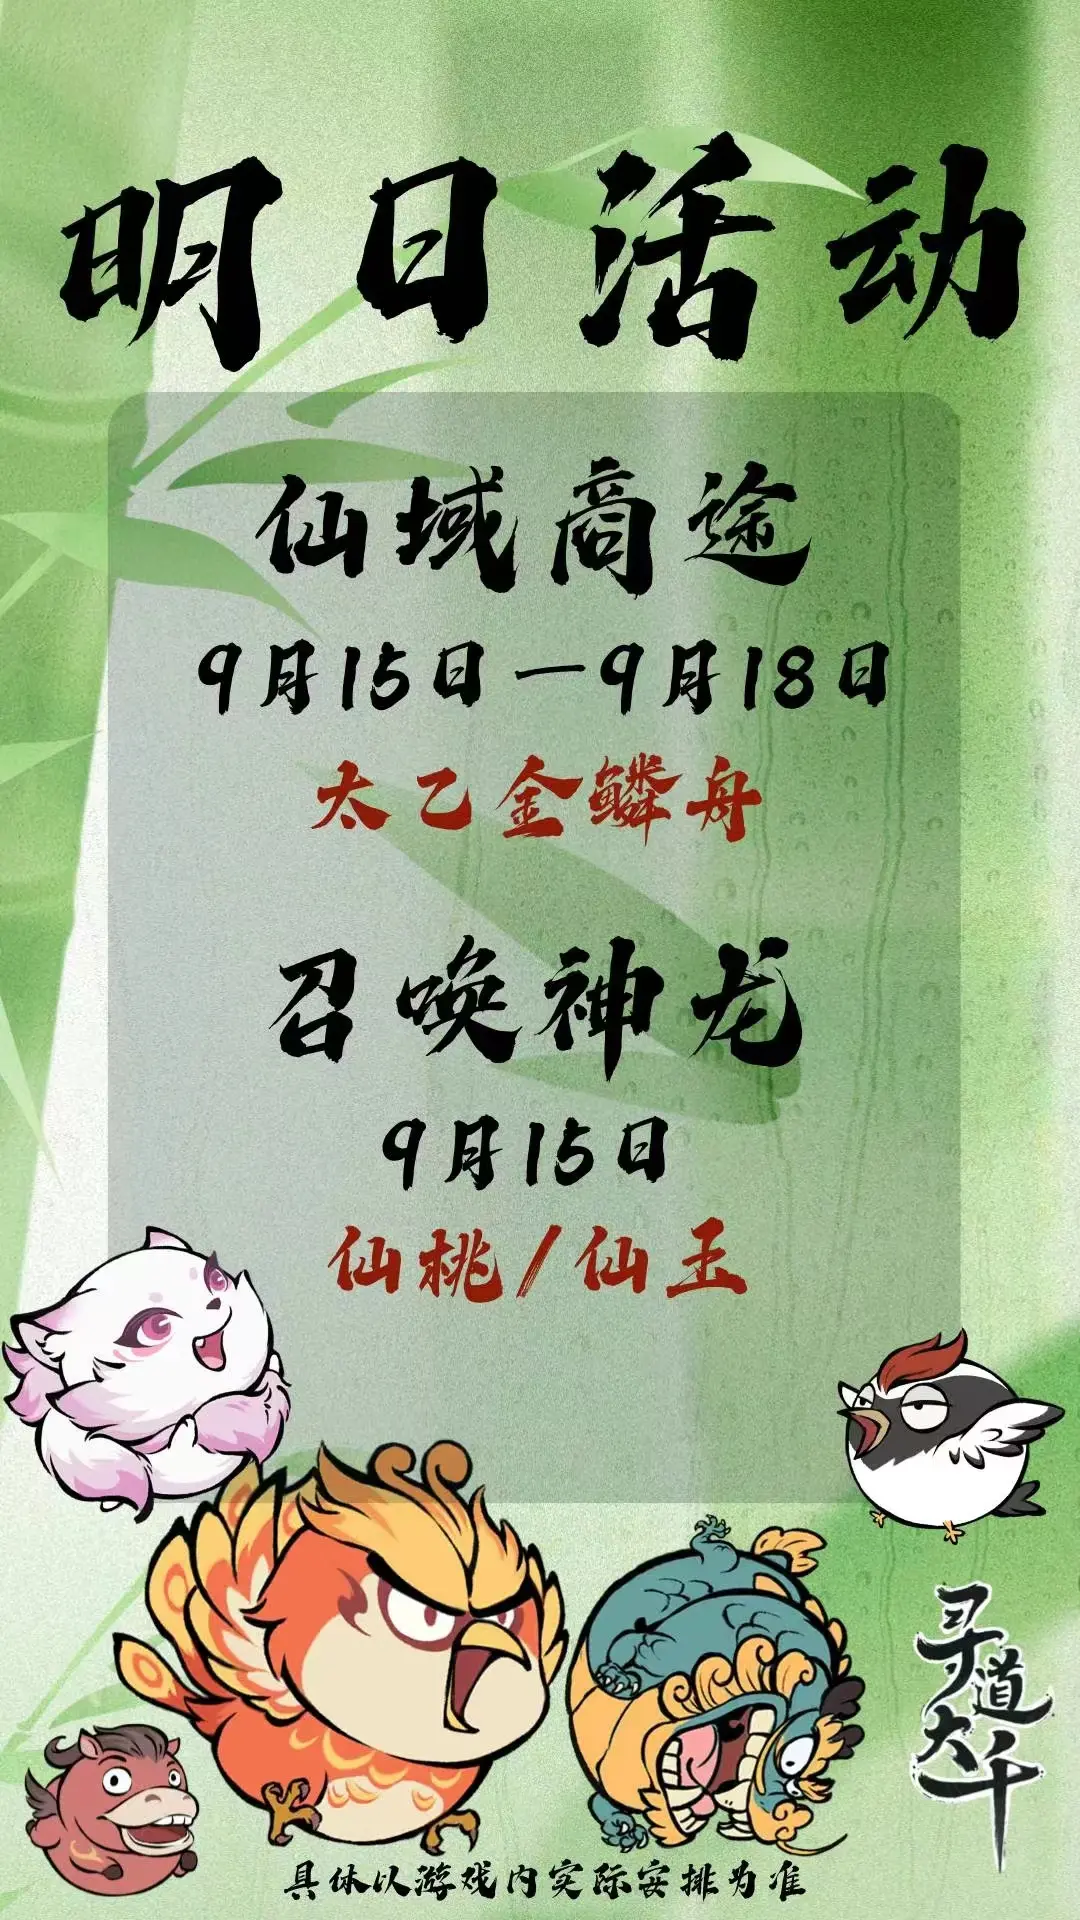 明日活动
仙域商途
9月15日—9月18日
太乙金鳞舟
召唤神龙
9月15日
仙桃/仙玉
寻道大千
具体以游戏内实际安排为准